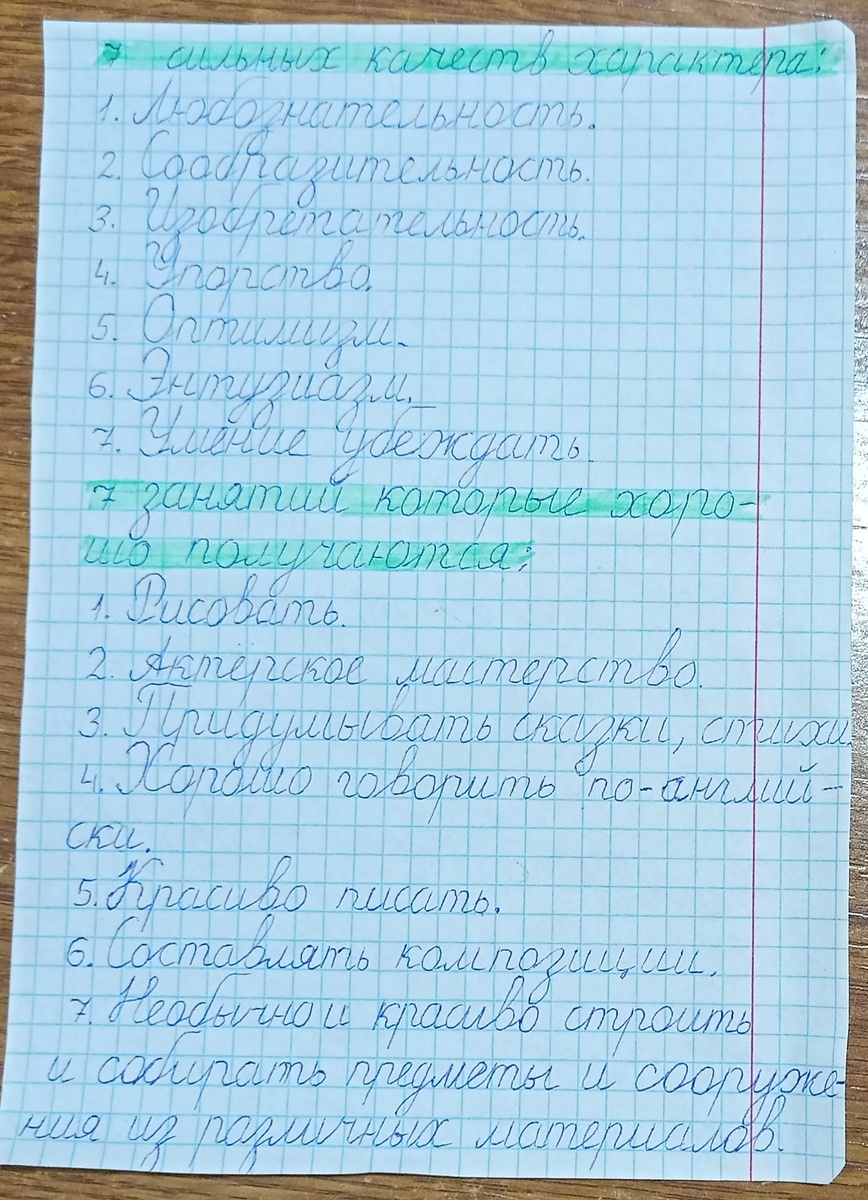 7 сильных качеств характера:
1. Любознательность.
2. Сообразительность.
3. Изобретательность.
4. Упорство.
5. Оптимизм.
6. Энтузиазм.
7. Умение убеждать.
7 занятий которые хоро-
шо получаются:
1. Рисовать.
2. Актёрское мастерство.
3. Придумывать сказки, стихи.
4. Хорошо говорить по-англий-
ски.
5. Красиво писать.
6. Составлять композиции.
7. Необычно и красиво строить
и собирать предметы и сооруже-
ния из различных материалов.